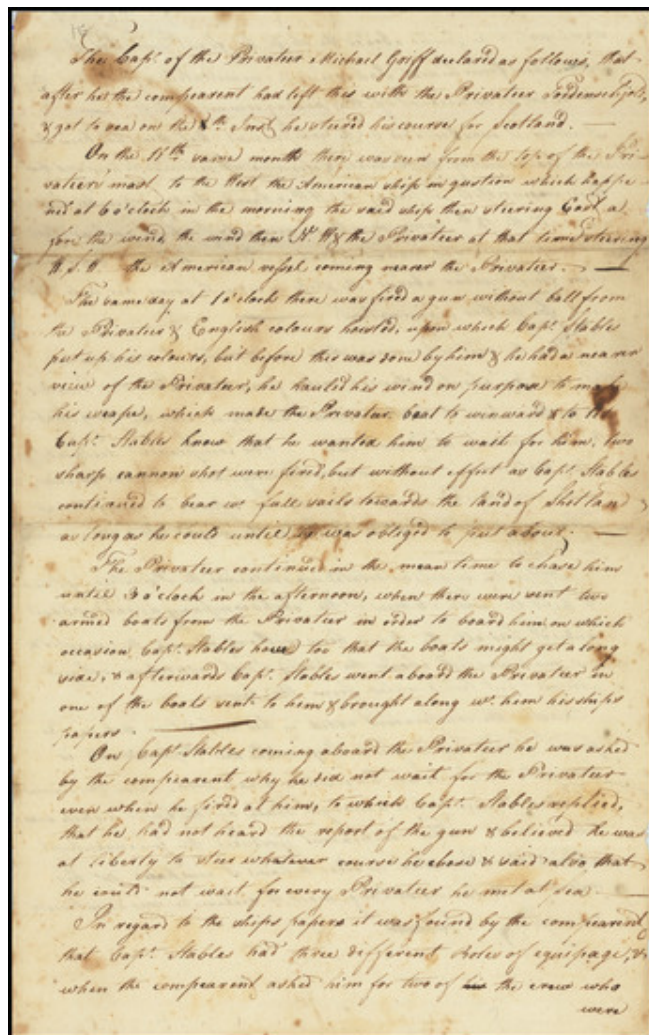 The Capt. of the Privateer Michael Griff declared as follows, that
after he the compearent had left this with the Privateer Tordenschjold,
& got to sea on the 8th Inst. he steered his course for Scotland. —
On the 11th same month there was seen from the top of the Pri-
vateers mast to the West the American ship in qustion which happe-
ned at 6 o'clock in the morning the said ship then steering East a
fore the wind, the wind then & the Privateer at that time steering
the American vessel coming nearer the Privateer. —
The same day at 1 o'clock there was fired a gun without ball from
the Privateer & English colours hoisted, upon which Capt. Stables
put up his colours, but before this was done by him & he had a nearer
view of the Privateer, he hauled his wind on purpose to make
his escape, which made the Privateer beat to winward & to let
Capt. Stables know that he wanted him to wait for him, two
sharp cannon shot were fired, but without effect as Capt. Stables
continued to bear wt. full sails towards the land of Shetland
as long as he could until he was obliged to put about. —
The Privateer continued in the mean time to chase him
until 3 o'clock in the afternoon, when there were sent two
armed boats from the Privateer in order to board him on which
occasion Capt. Stables hove too that the boats might get along
side, & afterwards Capt. Stables went aboard the Privateer in
one of the boats sent to him & brought along wt. him his ships
papers. —
On Capt. Stables coming aboard the Privateer he was asked
by the compearent why he did not wait for the Privateer
even when he fired at him, to which Capt. Stables replied,
that he had not heard the report of the gun & believed he was
at liberty to steer whatever course he chose & said also that
he could not wait for every Privateer he met at sea. —
In regard to the ships papers it was found by the compearent
that Capt. Stables had three different Roles of equipage, &
when the compearent asked him for two of the crew who
were